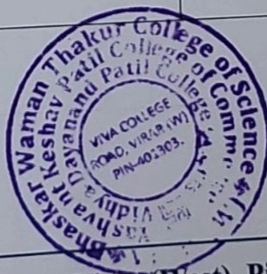 Bhaskar Waman Thakur College of Science
Yashvant Keshav Patil College of Commerce
Vidhya Dayanand Patil College Arts
VIVA COLLEGE
ROAD, VIRAR (W)
PIN-401303.